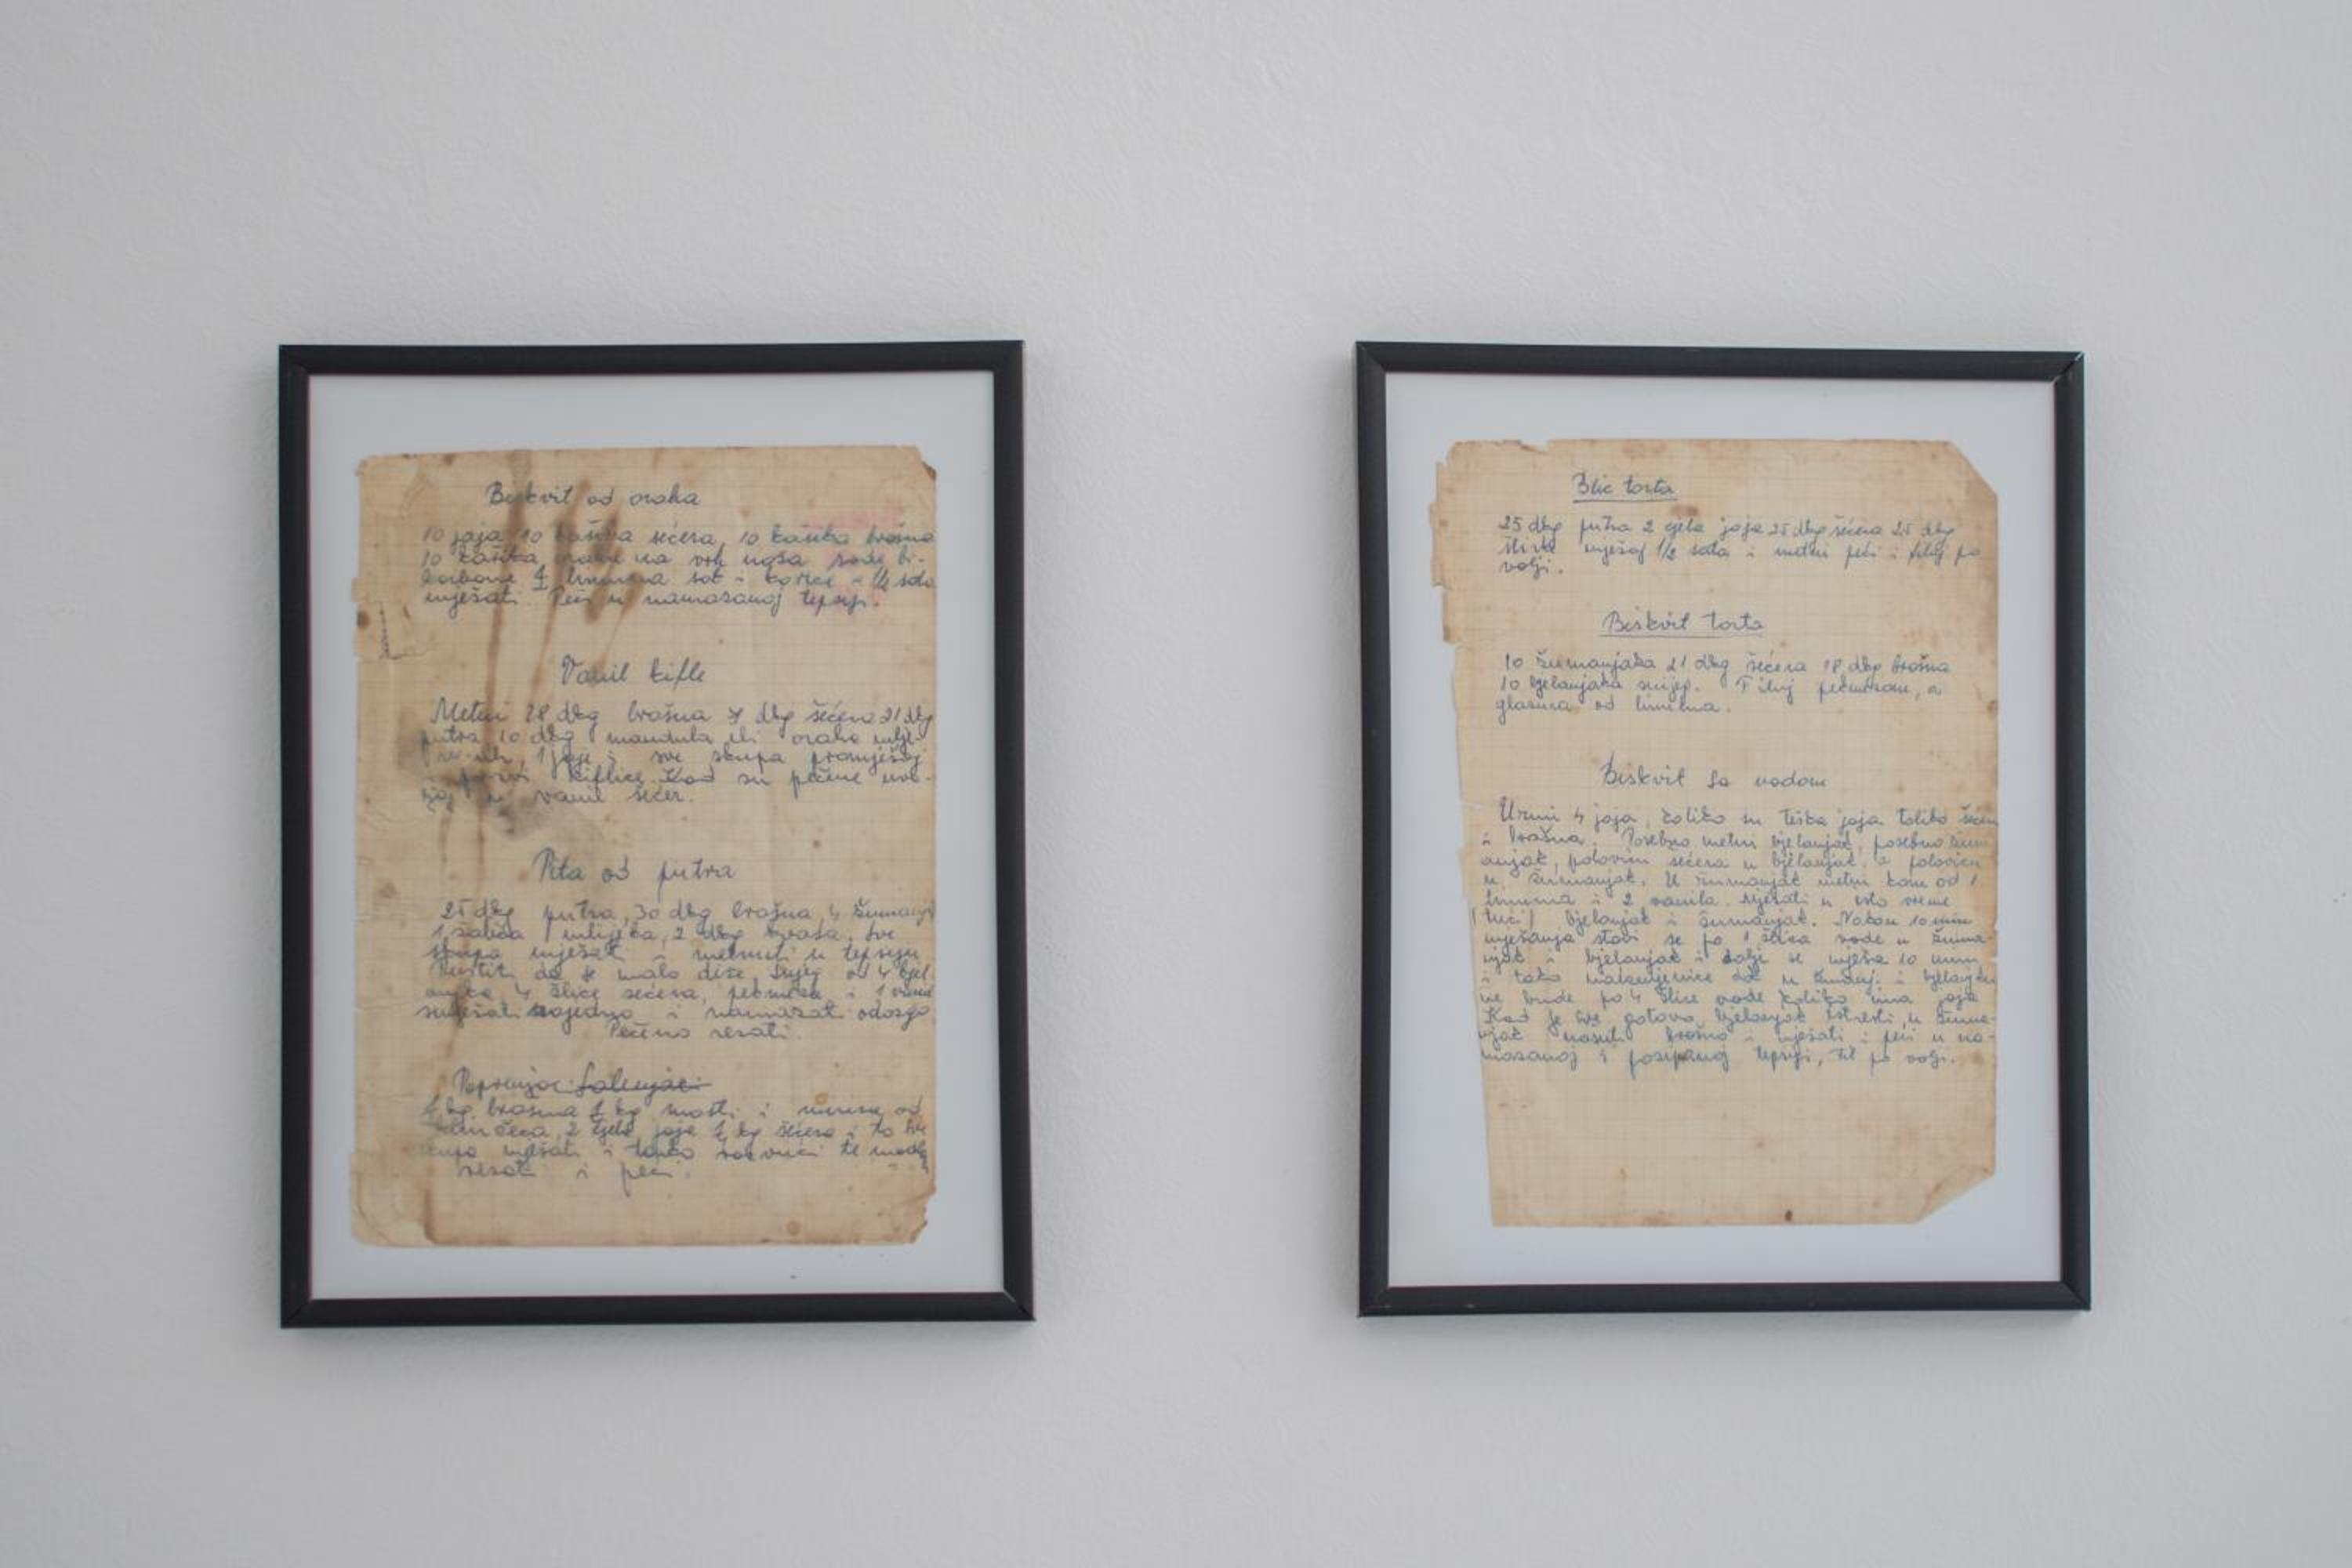 Biskvit od oraha
10 jaja 10 kašika sećera, 10 kašika brašna
10 kašika oraha na vrh noža sode bi-
karbone 1 limuna sok i koricu i 1/2 sata
mješati. Peći u namazanoj tepsiji.
Vanil kifle
Metni 28 dkg brašna 7 dkg šećera 21 dkg
putra 10 dkg mandula ili oraha mlje-
1 jaje i sve skupa promješaj
kiflice. Kad su pečene uva-
ljaj u vanil šećer.
Pita od putra
25 dkg putra, 30 dkg brašna, 4 žumanjk
mlijeka, 2 dkg kvasa. Sve
skupa mješati i metnuti u tepsiju
Pustiti da se malo diže. Snijeg od 4 bjel
anjka 4 žlice sećera, pekmeza i 1 vanil
smješati zajedno i namazati odozgo
Pečeno rezati.
Paprenjaci
brašna kg masti i
2 cjela jaja kg šećera i to sve
skupa mješati i tanko
rezati i peći.
Blic torta
25 dkg putra 2 cjela jaja 25 dkg šećera 25 dkg
mješaj 1/2 sata i metni peći i filuj po
volji.
Biskvit torta
10 žumanjaka 21 dkg šećera 18 dkg brašna
10 bjelanjaka snijeg. Filuj pekmezom, a
glazura od limuna.
Biskvit sa vodom
Uzmi 4 jaja, koliko su teška jaja toliko šećera
i brašna. Posebno metni bjelanjak, posebno žum
anjak, polovicu sećera u bjelanjak, a polovicu
u žumanjak. U žumanjak metni koru od 1
limuna i 2 vanila. Mješati u isto vreme
tući bjelanjak i žumanjak. Nakon 10 min
mješanja stavi se po 1 žlica vode u žuma-
njak i bjelanjak i dalji se mješa 10 min
i tako naizmjenice dok u žumanj. i bjelanjku
ne bude po 4 žlice vode koliko ima jaja
Kad je sve gotovo, bjelanjak istresti u žuma-
njak nasuti brašno i mješati i peći u na-
mazanoj i posipanoj tepsiji, fil po volji.